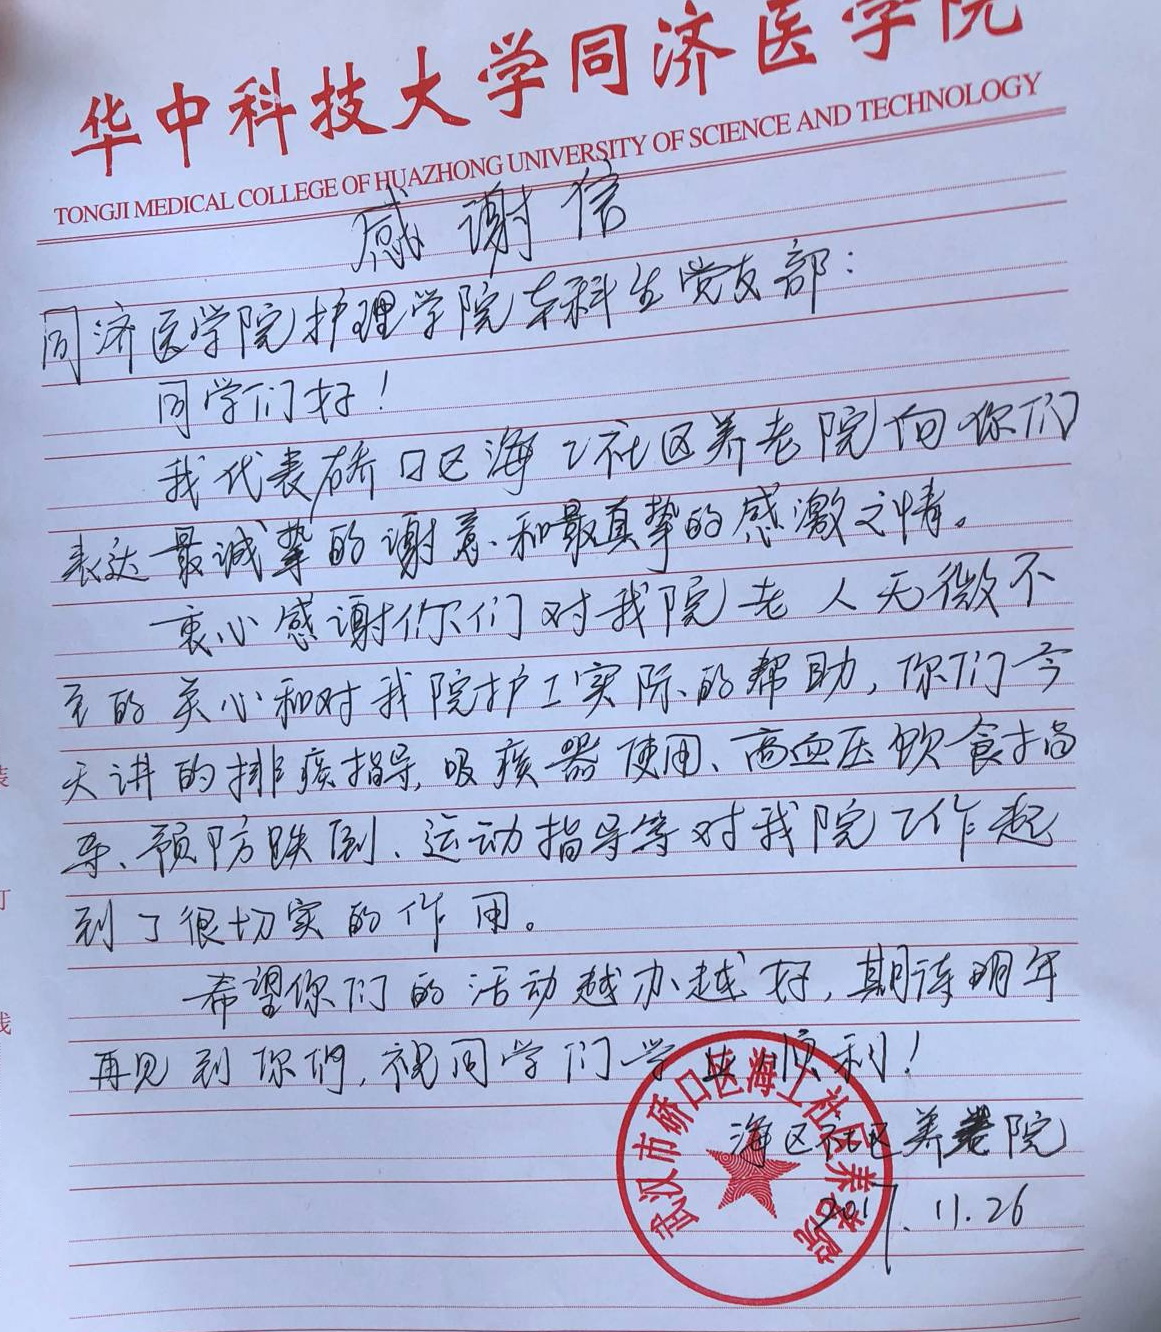 华中科技大学同济医学院
TONGJI MEDICAL COLLEGE OF HUAZHONG UNIVERSITY OF SCIENCE AND TECHNOLOGY
感谢信
同济医学院护理学院本科生党支部：
同学们好！
我代表硚口区海工社区养老院向你们
表达最诚挚的谢意、和最真挚的感激之情。
衷心感谢你们对我院老人无微不
至的关心和对我院护工实际的帮助，你们今
天讲的排痰指导，吸痰器使用、高血压饮食指
导、预防跌倒、运动指导等对我院工作起
到了很切实的作用。
希望你们的活动越办越好，期待明年
再见到你们，祝同学们学业顺利！
海区社区养老院
2017.11.26
武汉市硚口区海工社区养老院
装
订
线